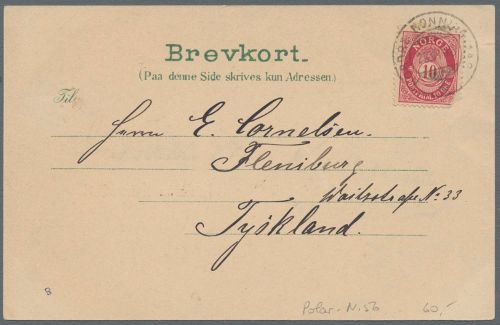 Brevkort.
(Paa denne Side skrives kun Adressen.)
NORGE
10
Til
Herrn E. Cornelsen.
Flensburg
Waitzstraße No: 33
Tyskland.
8
Polar - N. 5b
60,-